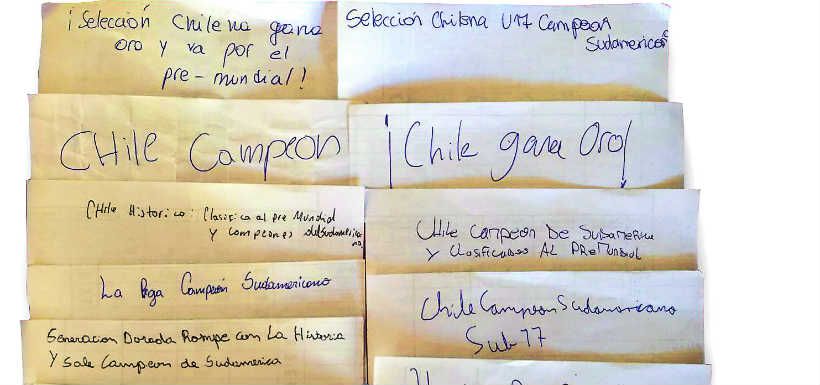 ¡Selección Chilena gana
oro y va por el
pre-mundial!
CHile Campeon
CHile Historico: Clasifica al pre Mundial
y campeones
La Roja Campeón Sudamericano
Generacion Dorada Rompe con La Historia
Y Sale Campeon de Sudamerica
Selección Chilena U17 Campeon
Sudamericano
¡Chile gana Oro!
CHile Campeon De Sudamerica
y Clasificados AL PReMundial
Chile Campeon Sudamericano
Sub 17